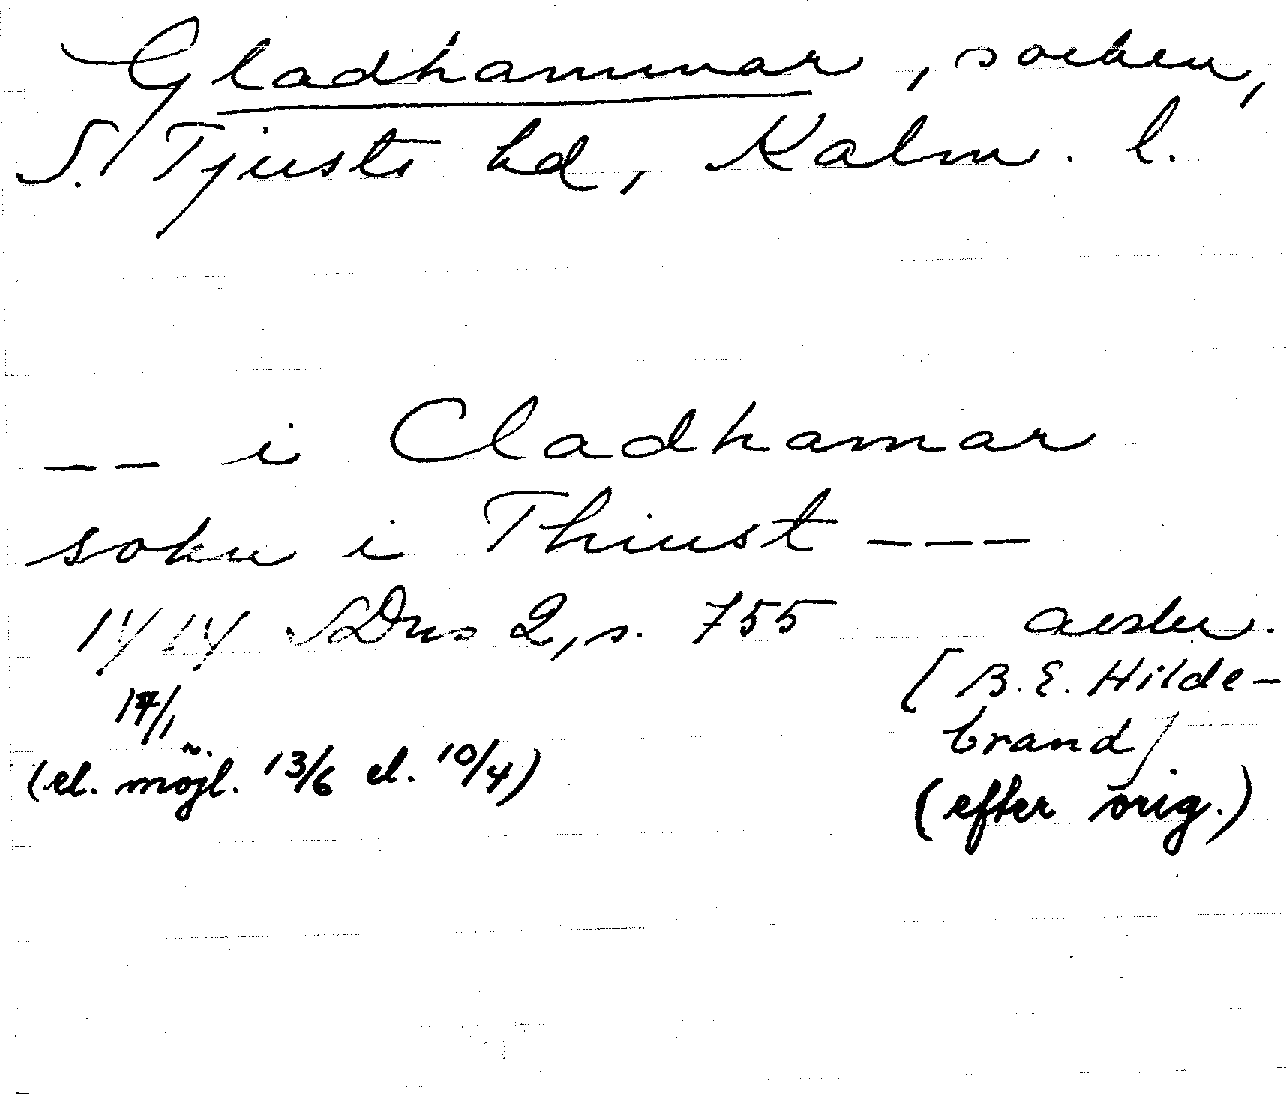 Gladhammar, socken,
S. Tjusts hd, Kalm. l.
-- i Cladhamar
sokn i Thiust ---
1414 SDns 2, s. 755 avskr.
17/1 [B. E. Hilde-
brand]
(el. möjl. 13/6 el. 10/4) (efter orig.)